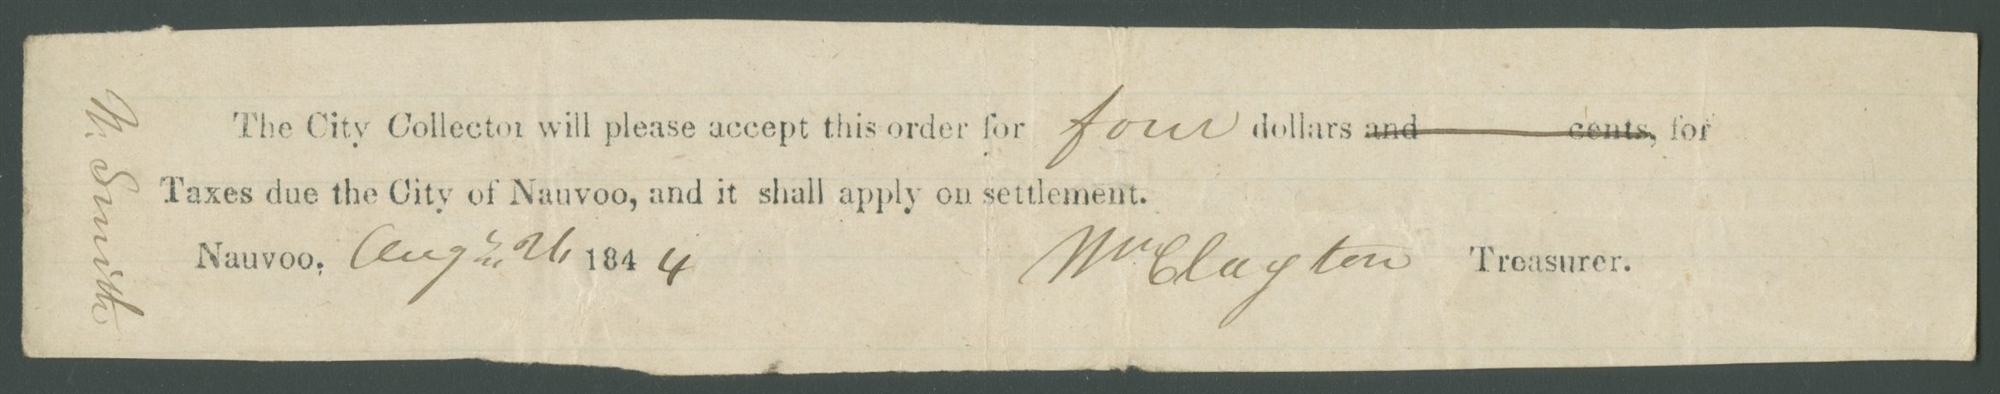 The City Collector will please accept this order for four dollars and cents, for
Taxes due the City of Nauvoo, and it shall apply on settlement.
Nauvoo, Augt 26 1844 Wm Clayton Treasurer.
N. Smith